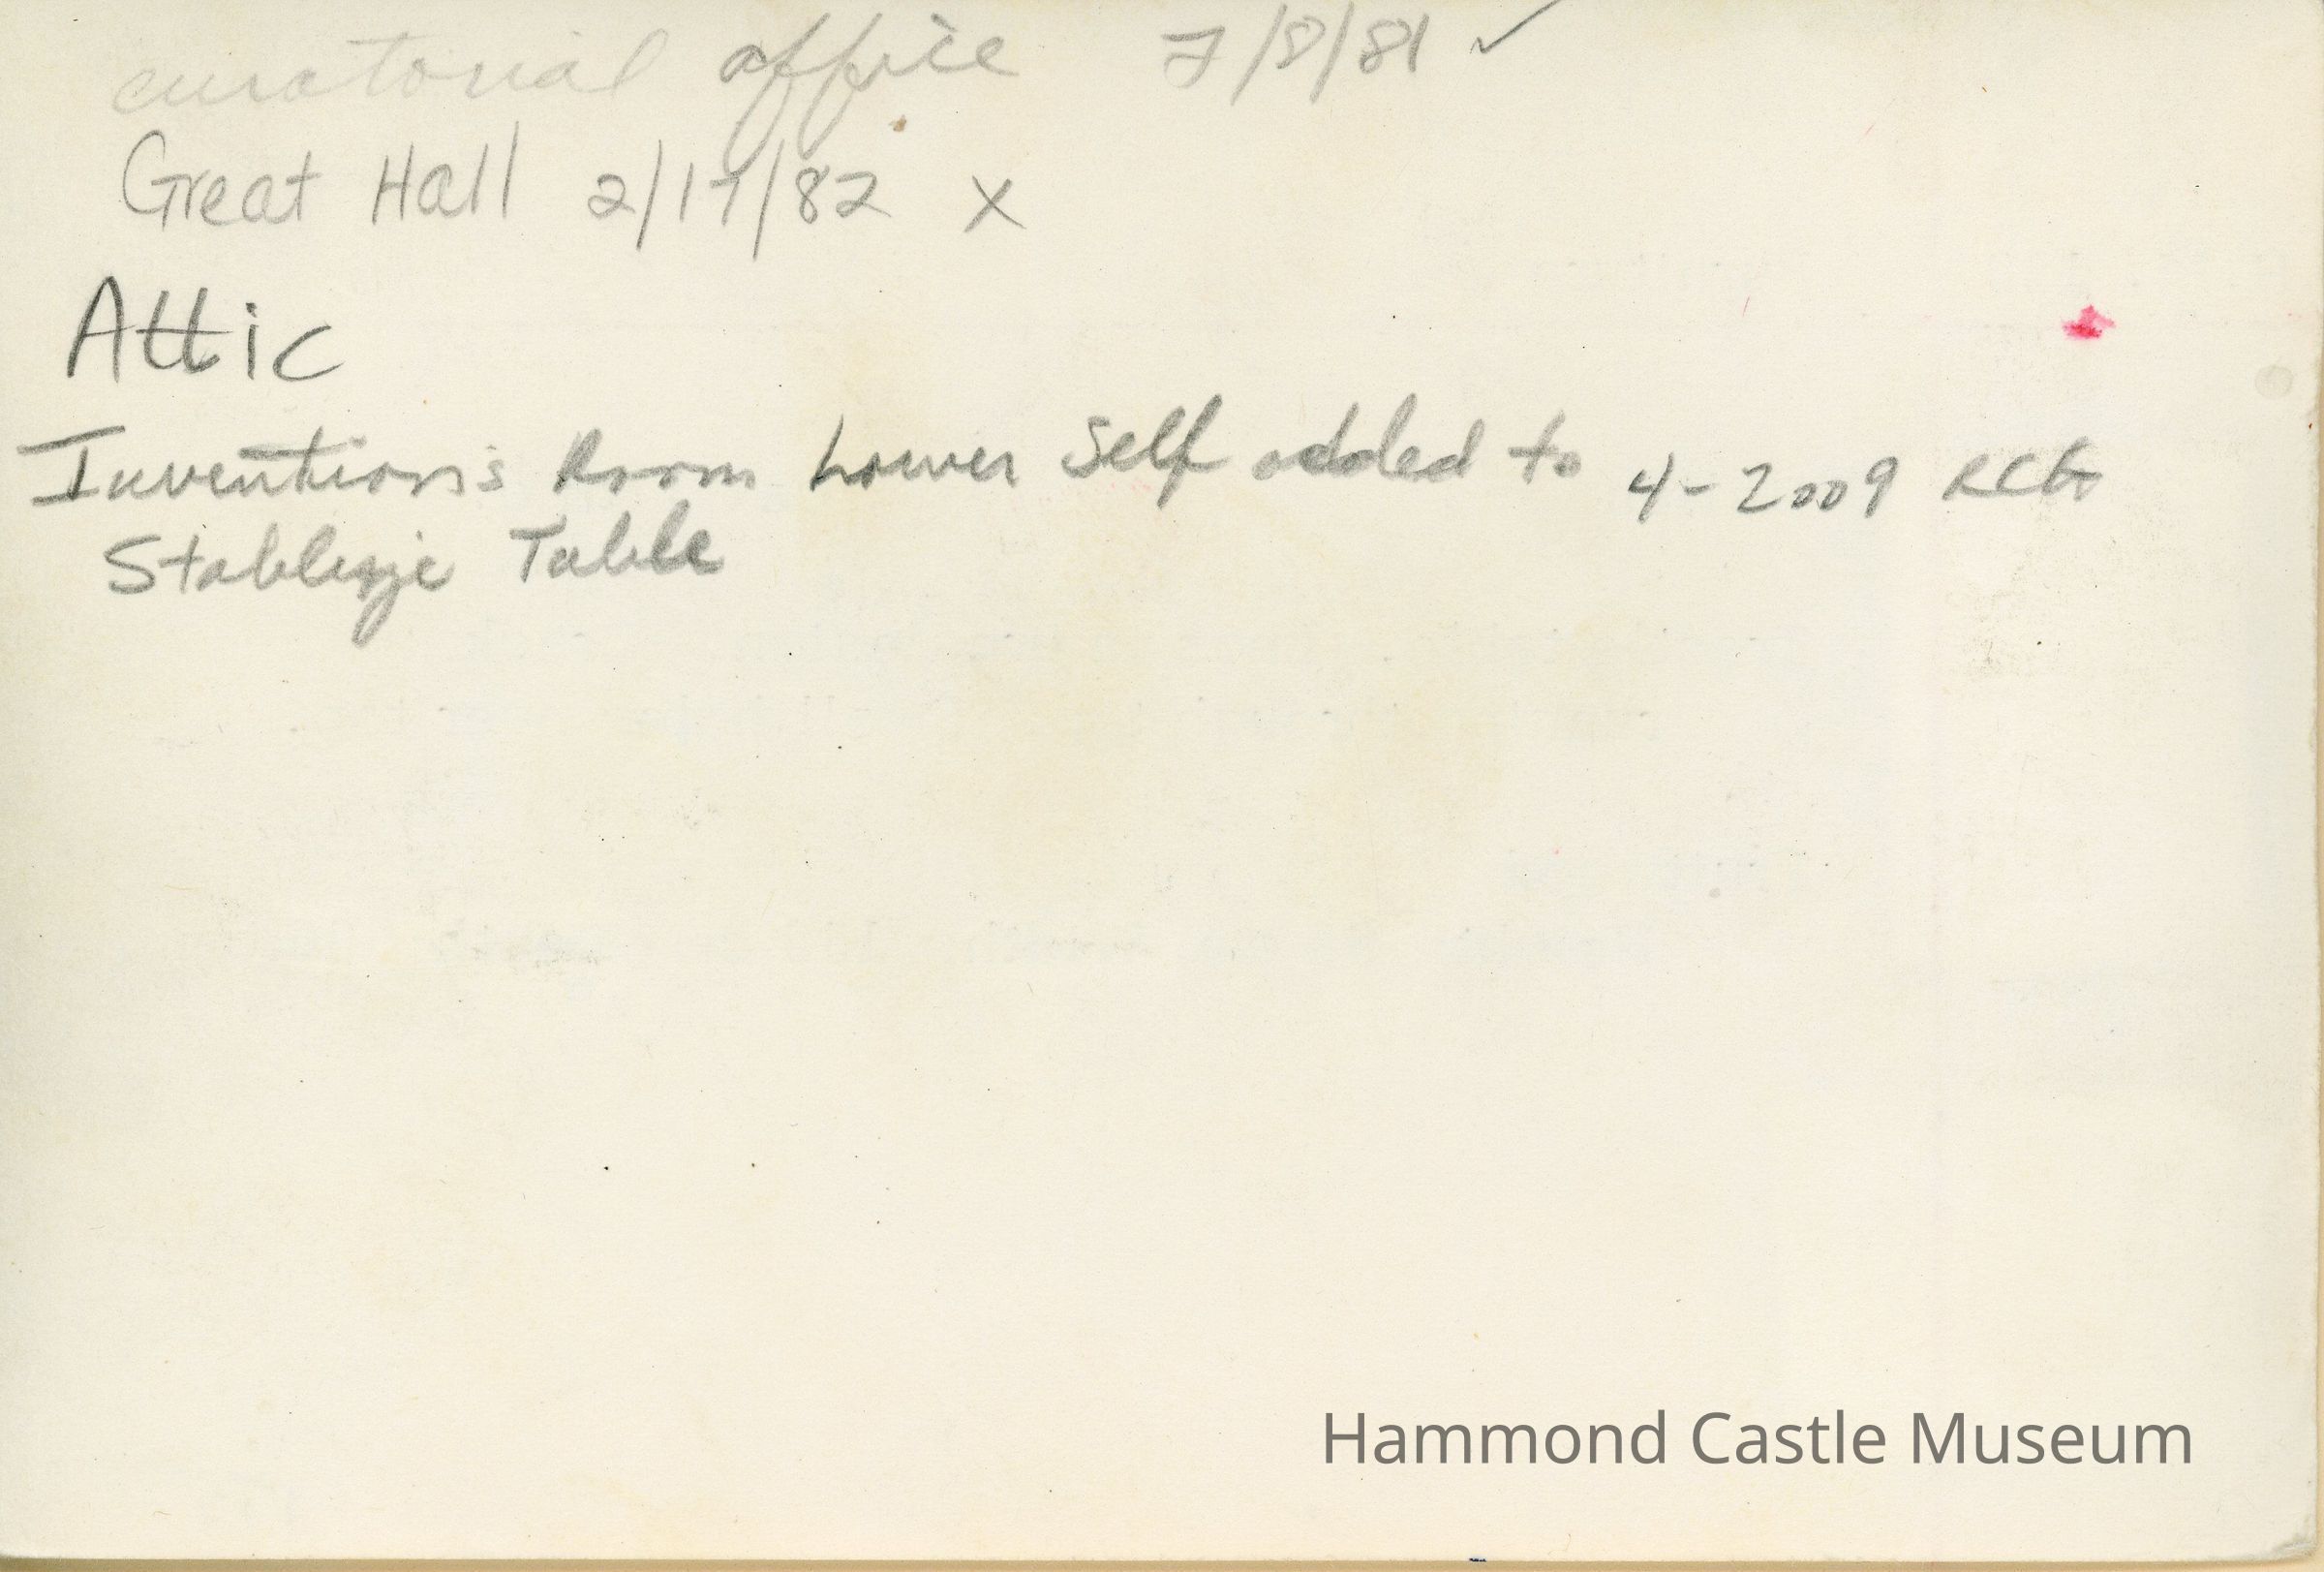 curatorial office 7/8/81 ✓
Great Hall 2/17/82 x
Attic
Inventions Room Lower Self added to 4-2009 RCG
Stablize Table
Hammond Castle Museum